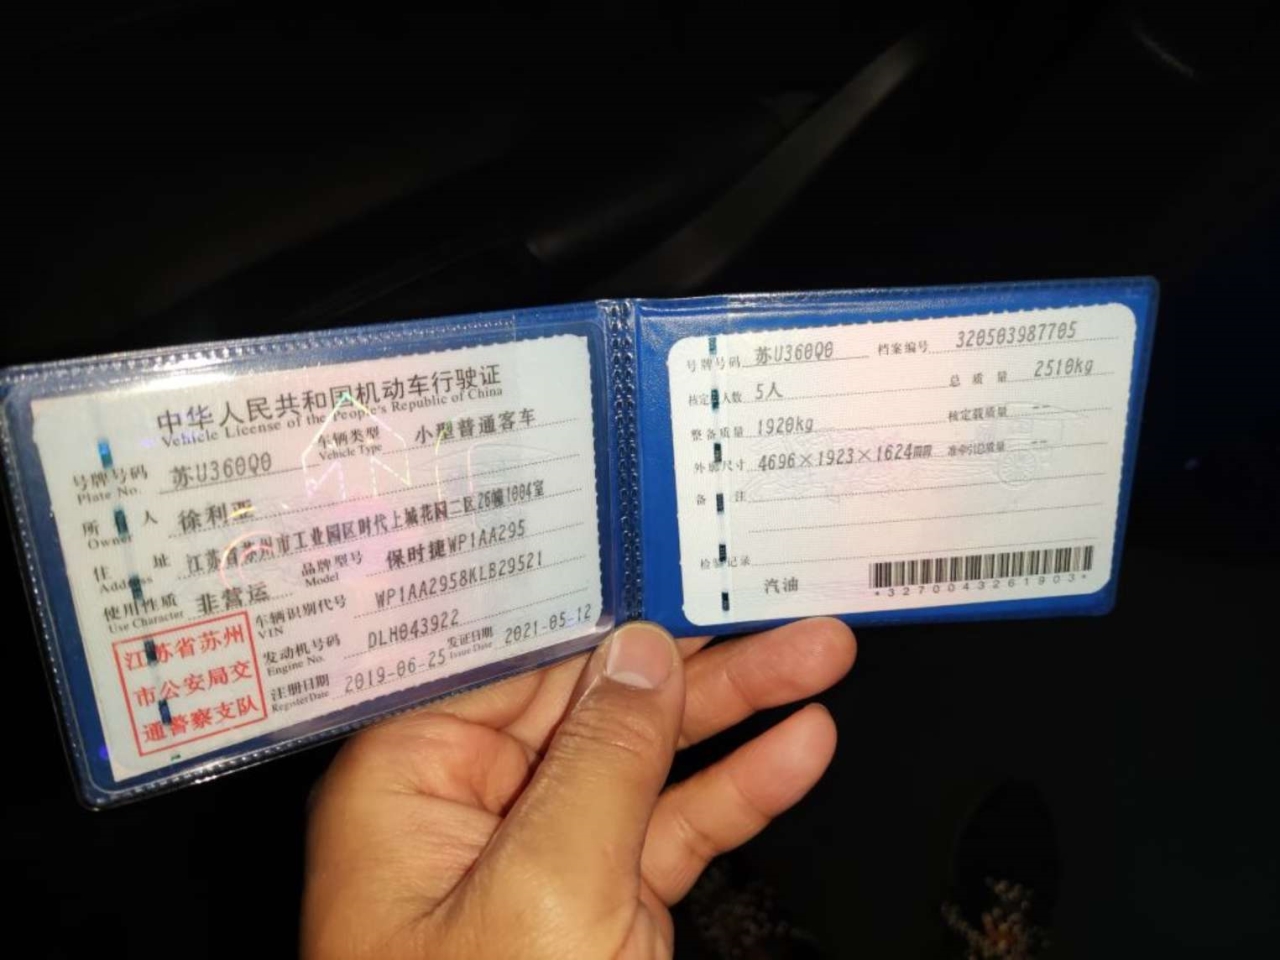 中华人民共和国机动车行驶证
Vehicle License of the People's Republic of China
号牌号码 苏U360Q0 车辆类型 小型普通客车
Plate No. Vehicle Type
所 人 徐利
Owner
住 址 江苏省苏州市工业园区时代上城花园二区26幢1004室
Address
使用性质 非营运 品牌型号 保时捷WP1AA295
Use Character Model
车辆识别代号 WP1AA2958KLB29521
VIN
发动机号码 DLH043922
Engine No.
注册日期 2019-06-25 发证日期 2021-05-12
Register Date Issue Date
江苏省苏州
市公安局交
通警察支队
号牌号码 苏U360Q0 档案编号 320503987705
核定 人数 5人 总质量 2510kg
整备质量 1920kg 核定载质量 --
外廓尺寸 4696×1923×1624mm 准牵引总质量 --
备 注
检验记录
汽油
*3270043261903*